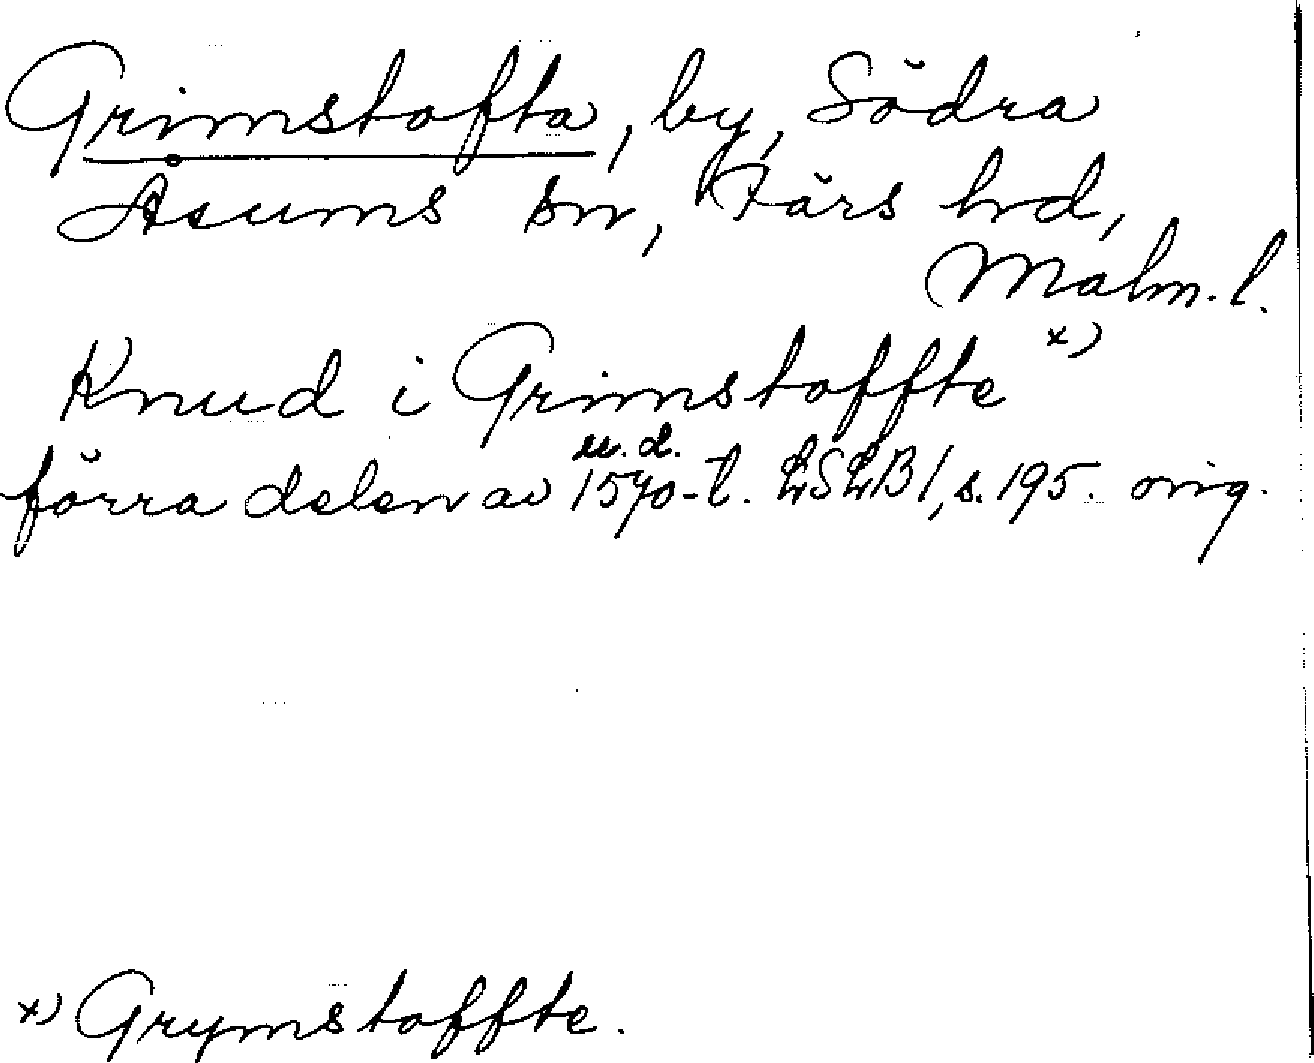 Grimstofta, by, Södra
Åsums sn, Färs hd,
Malm. l.
Knud i Grimstoffte x)
u. d.
förra delen av 1570-t. LSLB 1, s. 195. orig.
x) Grymstoffte.